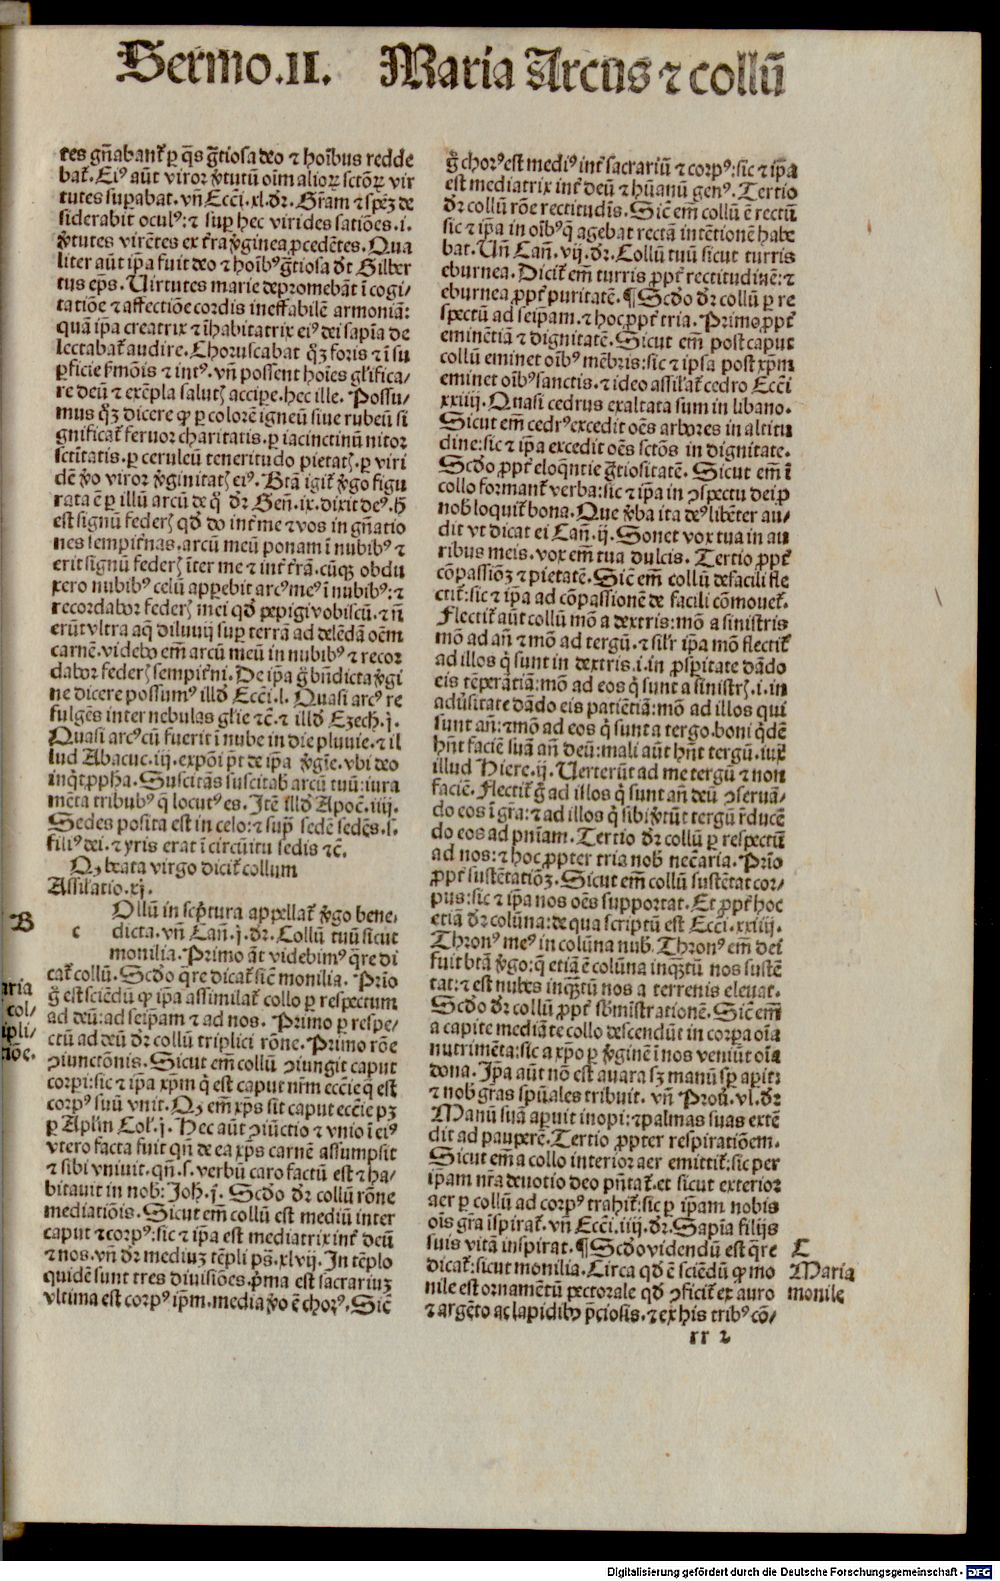 Sermo.II. Maria Arcus ⁊ collū
tes gn̄abant᷑ ꝑ q̄s gr̄tiosa deo ⁊ hoībus redde
bat᷑. Eiꝰ aūt virorꝫ v̓tutū oīm aliorꝫ sctōrꝫ vir
tutes supabat. vn̄ Ecci. xl. dr̄. Gr̄am ⁊ spēꝫ de
siderabit oculꝰ: ⁊ sup hec virides satiōes. i.
v̓tutes virētes ex t̓ra v̓ginea ꝓcedētes. Qua
liter aūt ip̄a fuit deo ⁊ hoībꝰ gr̄tiosa dt̄ Gilber
tus ep̄s. Uirtutes marie depromebāt ī cogi⸗
tatiōe ⁊ affectiōe cordis ineffabilē armoniā:
quā ip̄a creatrix ⁊ īhabitatrix eiꝰ dei sapīa de
lectabat᷑ audire. Choruscabat qꝫ foris ⁊ ī su
ꝑficie s̓mōis ⁊ intꝰ. vn̄ possent hoīes glīfica⸗
re deū ⁊ exēpla salutꝭ accipe. hec ille. Possu⸗
mus qꝫ dicere ꝙ ꝑ colorē igneū siue rubeū si
gnificat᷑ feruor charitatis. ꝑ iacinctinū nitor
sctītatis. ꝑ ceruleū teneritudo pietatꝭ. ꝑ viri
dē v̓o viror v̓ginitatꝭ eiꝰ. Btā igit᷑ v̓go figu
rata ē ꝑ illū arcū de q̊ dr̄ Gen̄. ix. dixit deꝰ. h̄
est signū federꝭ qd̄ do int᷑ me ⁊ vos in gn̄atio
nes sempit᷑nas. arcū meū ponam ī nubibꝰ ⁊
erit signū federꝭ īter me ⁊ int᷑ t̓ra. cūqꝫ obdu
xero nubibꝰ celū apparebit arcꝰ meꝰ ī nubibꝰ: ⁊
recordabor federꝭ mei qd̄ pepigi vobiscū. ⁊ n̄
erūt vltra aq̄ diluuij sup terrā ad delēdā oēm
carnē. videbo em̄ arcū meū in nubibꝰ ⁊ recor
dabor federꝭ sempit᷑ni. De ip̄a g̊ bn̄dicta v̓gi
ne dicere possumꝰ illd̓ Ecci. l. Quasi arcꝰ re
fulgēs inter nebulas glīe ⁊c̄. ⁊ illd̓ Ezech. j.
Quasi arcꝰ cū fuerit ī nube in die pluuie. ⁊ il
lud Abacuc. iij. expōi pt̄ de ip̄a v̓gīe. vbi deo
inq̄t ꝓpha. Suscitās suscitab arcū tuū: iura
mēta tribubꝰ q̄ locutꝰ es. Itē illd̓ Apoc̄. iiij.
Sedes posita est in celo: ⁊ supͣ sedē sedēs. s.
filiꝰ dei. ⁊ yris erat ī circūitu sedis ⁊c̄.
Qꝫ beata virgo dicit᷑ collum
Assilatio. xj.
B
c
Ollū in scp̄tura appellat᷑ v̓go bene⸗
dicta. vn̄ Can̄. j. dr̄. Collū tuū sicut
monilia. Primo āt videbimꝰ q̄re di
cat᷑ collū. Scdo q̄re dicat᷑ siē monilia. Prīo
g̊ est sciēdū ꝙ ip̄a assimilat᷑ collo ꝑ respectum
ad deū: ad seipam ⁊ ad nos. Primo ꝑ respe⸗
ctū ad deū dr̄ collū triplici rōne. Primo rōe
ↄiunctōnis. Sicut em̄ collū ↄiungit caput
corpi: sic ⁊ ip̄a xpm̄ q̄ est caput nr̄m eccīe q̄ est
corpꝰ suū vnit. Qꝫ em̄ xp̄s sit caput eccīe pꝫ
ꝑ Apl̄m Col̓. j. Hec aūt ↄiūctio ⁊ vnio ī eiꝰ
vtero facta fuit qn̄ de ea xp̄s carnē assumpsit
⁊ sibi vniuit. qn̄. s. verbū caro factū est ⁊ ha⸗
bitauit in nob̓: Joh̄. j. Scdo dr̄ collū rōne
mediatiōis. Sicut em̄ collū est mediū inter
caput ⁊ corpꝰ: sic ⁊ ip̄a est mediatrix int᷑ deū
⁊ nos. vn̄ dr̄ mediuꝫ tēpli ps̄. xlvij. In tēplo
quidē sunt tres diuisiōes. pͥma est sacrariuꝫ
vltima est corpꝰ ip̄m. media v̓o ē chorꝰ. Siē
aria
col⸗
ipli⸗
iōe.
g̊ chorꝰ est mediꝰ int᷑ sacrariū ⁊ corpꝰ: sic ⁊ ip̄a
est mediatrix int᷑ deū ⁊ hūanū genꝰ. Tertio
dr̄ collū rōe rectitudīs. Siē em̄ collū ē rectū
sic ⁊ ip̄a in oībꝰ q̄ agebat rectā intētionē habe
bat. Un̄ Can̄. vij. dr̄. Collū tuū sicut turris
eburnea. Dicit᷑ em̄ turris ꝓpt᷑ rectitudinē: ⁊
eburnea ꝓpt᷑ puritatē. ¶ Scdo dr̄ collū ꝑ re
spectū ad seipam. ⁊ hoc ꝓpt᷑ tria. Primo ꝓpt᷑
eminētiā ⁊ dignitatē. Sicut em̄ post caput
collū eminet oībꝰ mēbris: sic ⁊ ipsa post xpm̄
eminet oībꝰ sanctis. ⁊ ideo assilat᷑ cedro Ecci
xxiiij. Quasi cedrus exaltata sum in libano.
Sicut em̄ cedrꝰ excedit oēs arbores in altitu
dine: sic ⁊ ip̄a excedit oēs sctōs in dignitate.
Scdo ꝓpt᷑ eloq̄ntie gr̄tiositatē. Sicut em̄ ī
collo formant᷑ verba: sic ⁊ ip̄a in ↄspectu dei ꝓ
nob̓ loquit᷑ bona. Que v̓ba ita deꝰ libēter au⸗
dit vt dicat ei Can̄. ij. Sonet vox tua in au
ribus meis. vox em̄ tua dulcis. Tertio ꝓpt᷑
cōpassiōꝫ ⁊ pietatē. Siē em̄ collū defacili fle
ctit᷑: sic ⁊ ip̄a ad cōpassionē de facili cōmouet᷑.
Flectit᷑ aūt collū mō a dextris: mō a sinistris
mō ad an̄ ⁊ mō ad tergū. ⁊ silr̄ ip̄a mō flectit᷑
ad illos q̄ sunt in dextris. i. in ꝓsꝑitate dādo
eis tēperātiā: mō ad eos q̄ sunt a sinistrꝭ. i. in
adu̓sitate dādo eis patiētiā: mō ad illos qui
sunt an̄: ⁊ mō ad eos q̄ sunt a tergo. boni q̄dē
hn̄t faciē suā an̄ deū: mali aūt hn̄t tergū. iux᷑
illud Hiere. ij. Uerterūt ad me tergū ⁊ non
faciē. Flectit᷑ g̊ ad illos q̄ sunt an̄ deū ↄseruā⸗
do eos ī gr̄a: ⁊ ad illos q̄ sibi v̓tūt tergū r̓ducē
do eos ad pn̄iam. Tertio dr̄ collū ꝑ respectū
ad nos: ⁊ hoc ꝓpter tria nob̓ necͣaria. Prīo
ꝓpt᷑ sustētatiōꝫ. Sicut em̄ collū sustētat cor⸗
pus: sic ⁊ ip̄a nos oēs supportat. Et ꝓpt᷑ hoc
etiā dr̄ colūna: de qua scriptū est Ecci. xxiiij.
Thronꝰ meꝰ in colūna nub̓. Thronꝰ em̄ dei
fuit btā v̓go: q̄ etiā ē colūna inqͣꝫtū nos sustē
tat: ⁊ est nubes inqͣꝫtū nos a terrenis eleuat.
Scdo dr̄ collū ꝓpt᷑ sb̓ministrationē. Siē em̄
a capite mediāte collo descendūt in corpa oīa
nutrimēta: sic a xp̄o ꝑ v̓ginē ī nos veniūt oīa
dona. Ip̄a aūt nō est auara sꝫ manū sp̄ apit᷑
⁊ nob̓ gr̄as spūales tribuit. vn̄ Prou̓. vl. dr̄
Manū suā apuit inopi: ⁊ palmas suas extē
dit ad pauperē. Tertio ꝓpter respiratiōem.
Sicut em̄ a collo interior aer emittit᷑: sic per
ipam nr̄a deuotio deo pn̄tat᷑. et sicut exterior
aer ꝑ collū ad corpꝰ trahit᷑: sic ꝑ ipam nobis
oīs gr̄a īspirat᷑. vn̄ Ecci. iiij. dr̄. Sapīa filijs
suis vitā inspirat. ¶ Scdo videndū est q̄re
dicat᷑: sicut monilia. Circa qd̄ ē sciēdū ꝙ mo
nile est ornamētū pectorale qd̄ ↄficit᷑ ex auro
⁊ argēto ac lapidibꝰ pͥciosis. ⁊ ex his tribꝰ cō⸗
C
Maria
monile
xx 2
Digitalisierung gefördert durch die Deutsche Forschungsgemeinschaft - DFG